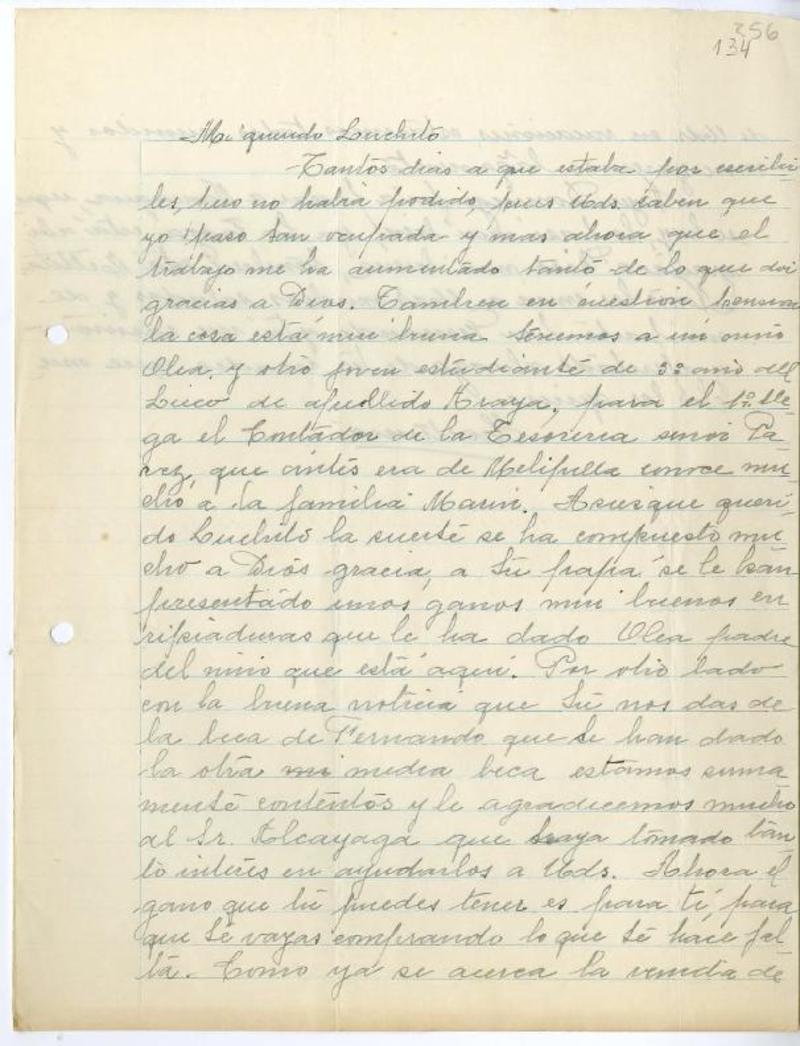 356
134
Mi querido Luchito
-Tantos dias a que estaba por escribir
les, pero no habia podido, pues Uds. saben que
yo paso tan ocupada y mas ahora que el
trabajo me ha aumentado tanto de lo que doi
gracias a Dios. Tambien en cuestion pension
la cosa está mui buena tenemos a un niño
Olea, y otro joven estudiante de 3º año del
Liceo de apellido Araya, para el 1º lle
ga el Contador de la Tesoreria señor Pa
rez, que antes era de Melipilla conoce mu
cho a la familia Marin. Asi es que queri
do Luchito la suerte se ha compuesto mu
cho a Diós gracia, a tú papá se le han
presentado unos ganos mui buenos en
ripiaduras que le ha dado Olea padre
del niño que está aquí. Por otro lado
con la buena noticia que tú nos das de
la beca de Fernando que le han dado
la otra media beca estamos suma
mente contentos y le agradecemos mucho
al Sr. Alcayaga que haya tomado tan
to interes en ayudarlos a Uds. Ahora el
gano que tú puedes tener es para tí, para
que te vayas comprando lo que te hace fal
ta. Como ya se acerca la venida de